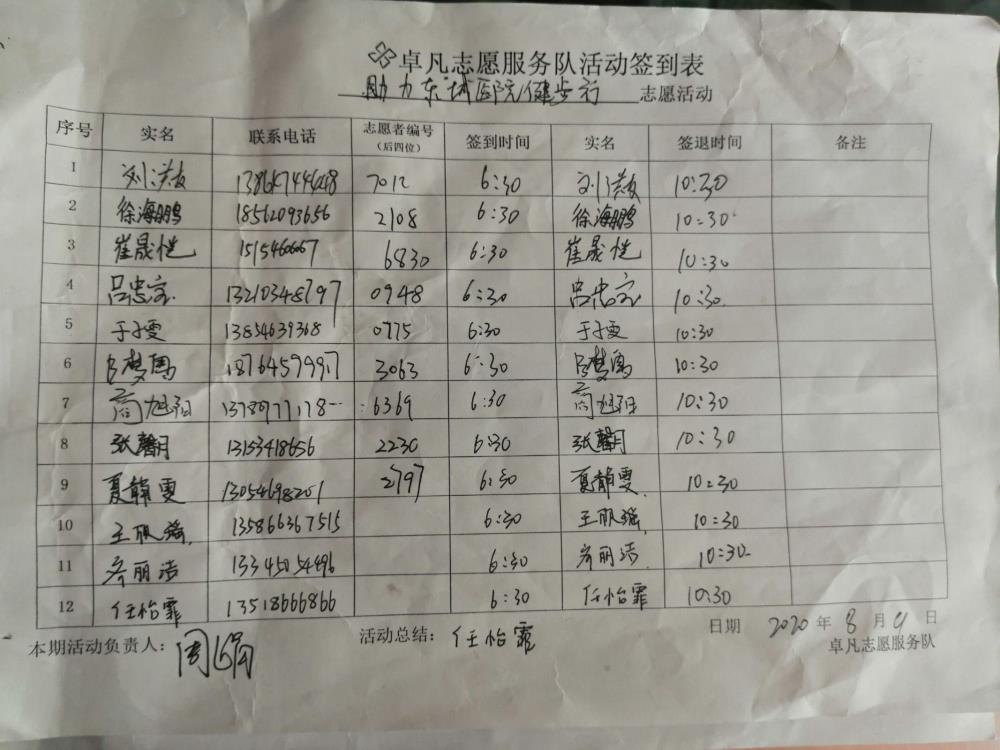 卓凡志愿服务队活动签到表
助力东城医院健步行 志愿活动
序号 实名 联系电话 志愿者编号（后四位） 签到时间 实名 签退时间 备注
1 刘洪 7012 6:30 刘洪 10:30
2 徐海鹏 18562093656 2108 6:30 徐海鹏 10:30
3 崔晟恺 6830 6:30 崔晟恺 10:30
4 吕忠 13210348797 0948 6:30 吕忠 10:30
5 于雯 13854639368 0775 6:30 于雯 10:30
6 吕梦 18764579997 3063 6:30 吕梦 10:30
7 商旭阳 6369 6:30 商旭阳 10:30
8 张馨月 13153418656 2230 6:30 张馨月 10:30
9 夏静雯 13054698201 2797 6:30 夏静雯 10:30
10 王 135866367515 6:30 王 10:30
11 齐丽洁 13345054496 6:30 齐丽洁 10:30
12 任怡霏 13518666866 6:30 任怡霏 10:30
本期活动负责人： 周娟 活动总结： 任怡霏 日期 2020 年 8 月 4 日
卓凡志愿服务队